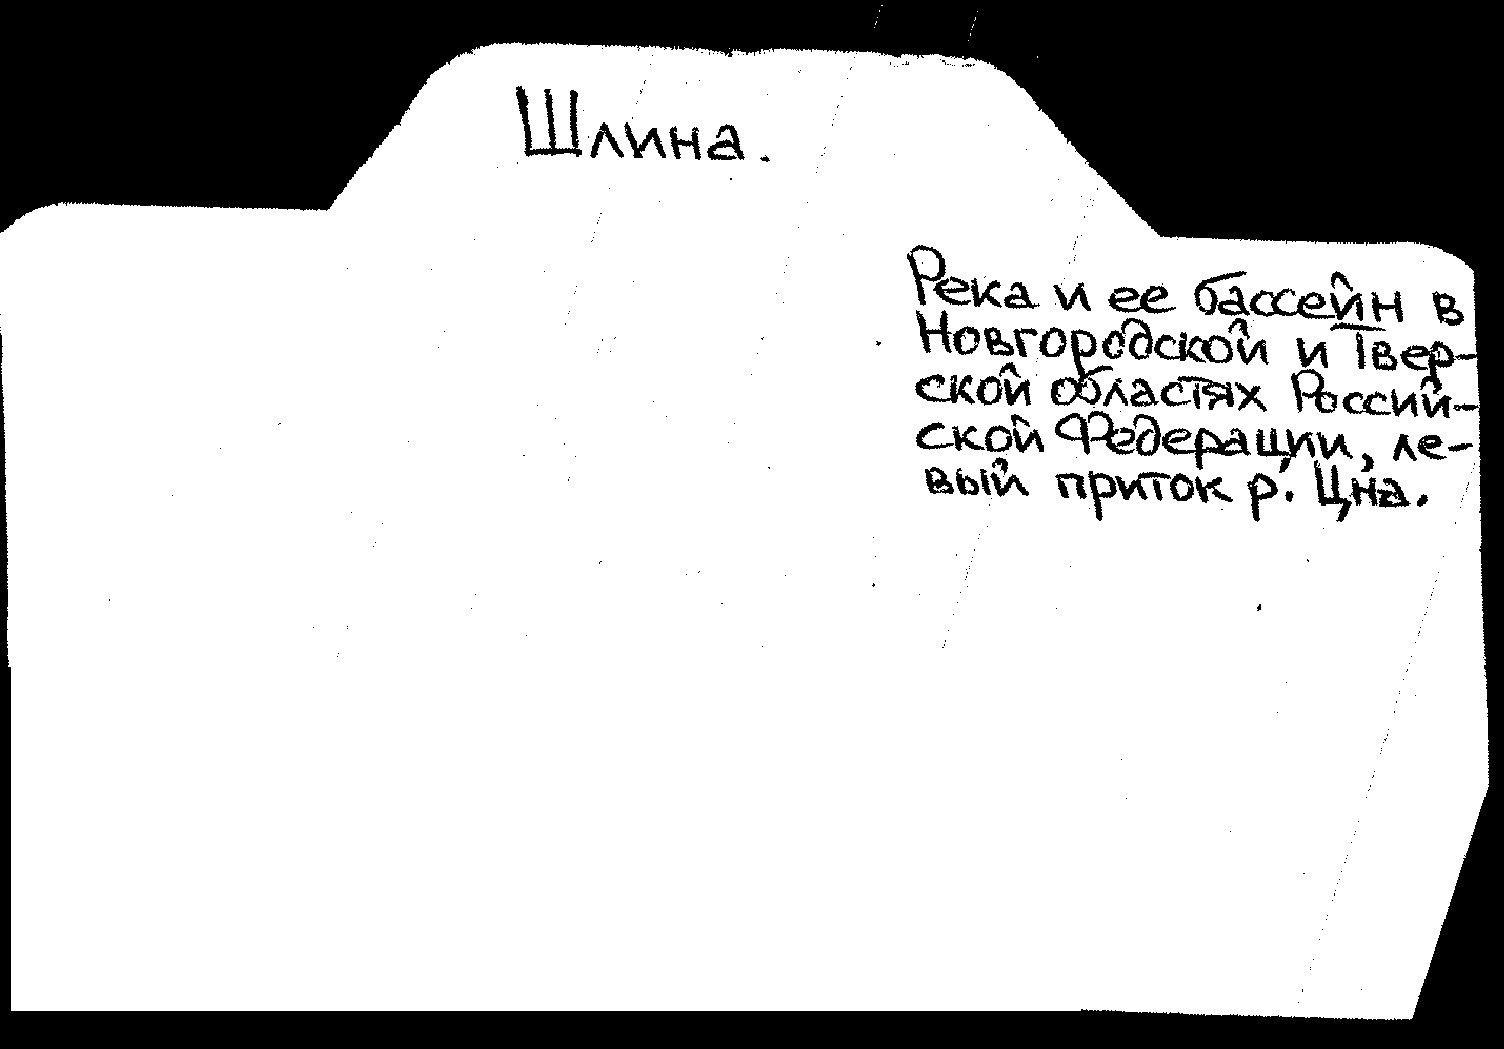 Шлина.
Река и ее бассейн в
Новгородской и Твер-
ской областях Россий-
ской Федерации, ле-
вый приток р. Цна.